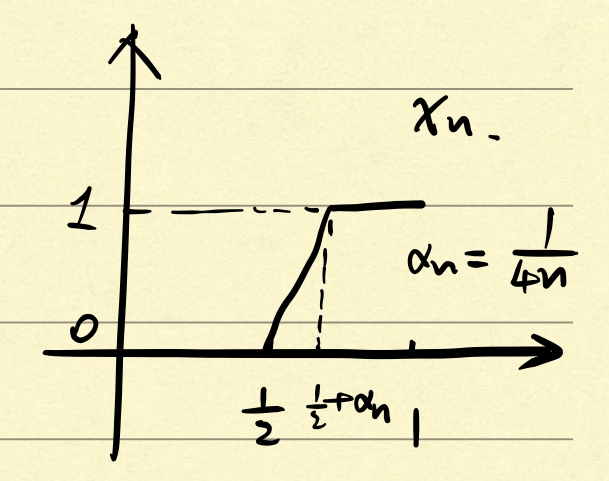 xₙ.
1
αₙ = 1/4n
0
1/2 1/2+αₙ 1